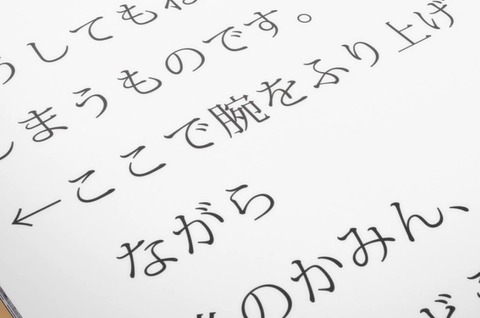 うしてもね
しまうものです。
←ここで腕をふり上げ
ながら
のかみん、